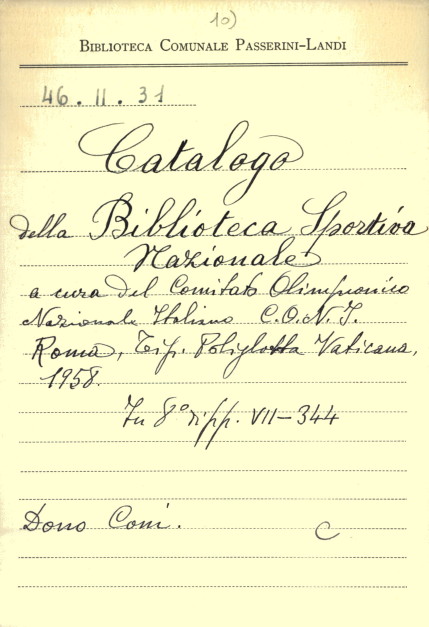 10)
BIBLIOTECA COMUNALE PASSERINI-LANDI
46. II. 31
Catalogo
della Biblioteca Sportiva
Nazionale
a cura del Comitato Olimpionico
Nazionale Italiano C.O.N.I.
Roma, Tip. Poliglotta Vaticana,
1958.
In 8° di pp. VII-344
Dono Coni. C